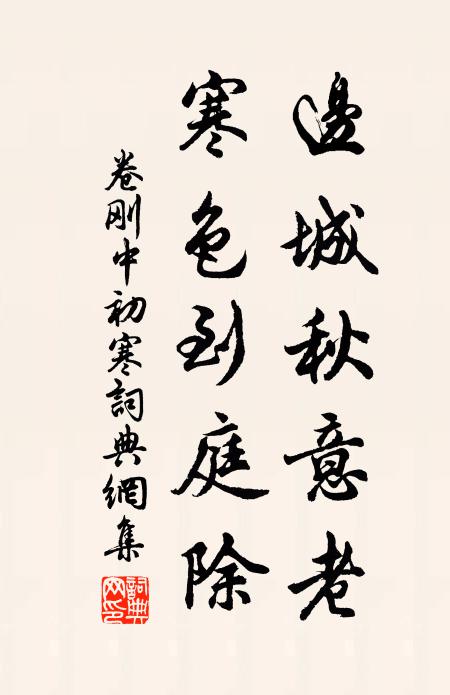 邊城秋意老
寒色到庭除
卷剛中初寒詞典網集
詞典
网印